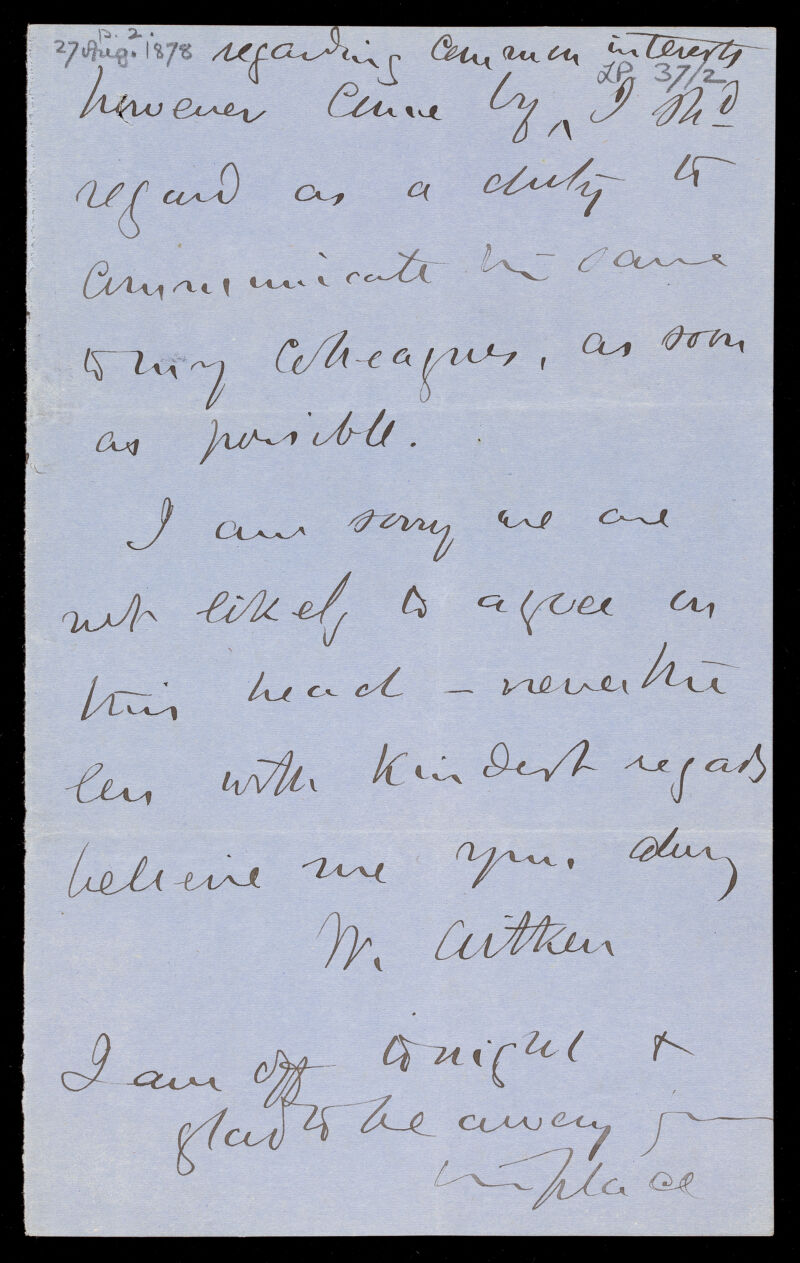 p. 2.
27 Aug. 1878
regarding common interests
LP. 37/2
however come by ‸ I shd
regard as a duty to
communicate the same
to my colleagues, as soon
as possible.
I am sorry we are
not likely to agree on
this head – neverthe
less with kindest regards
believe me yours
W. Aitken
I am off tonight +
glad to be away from
this place